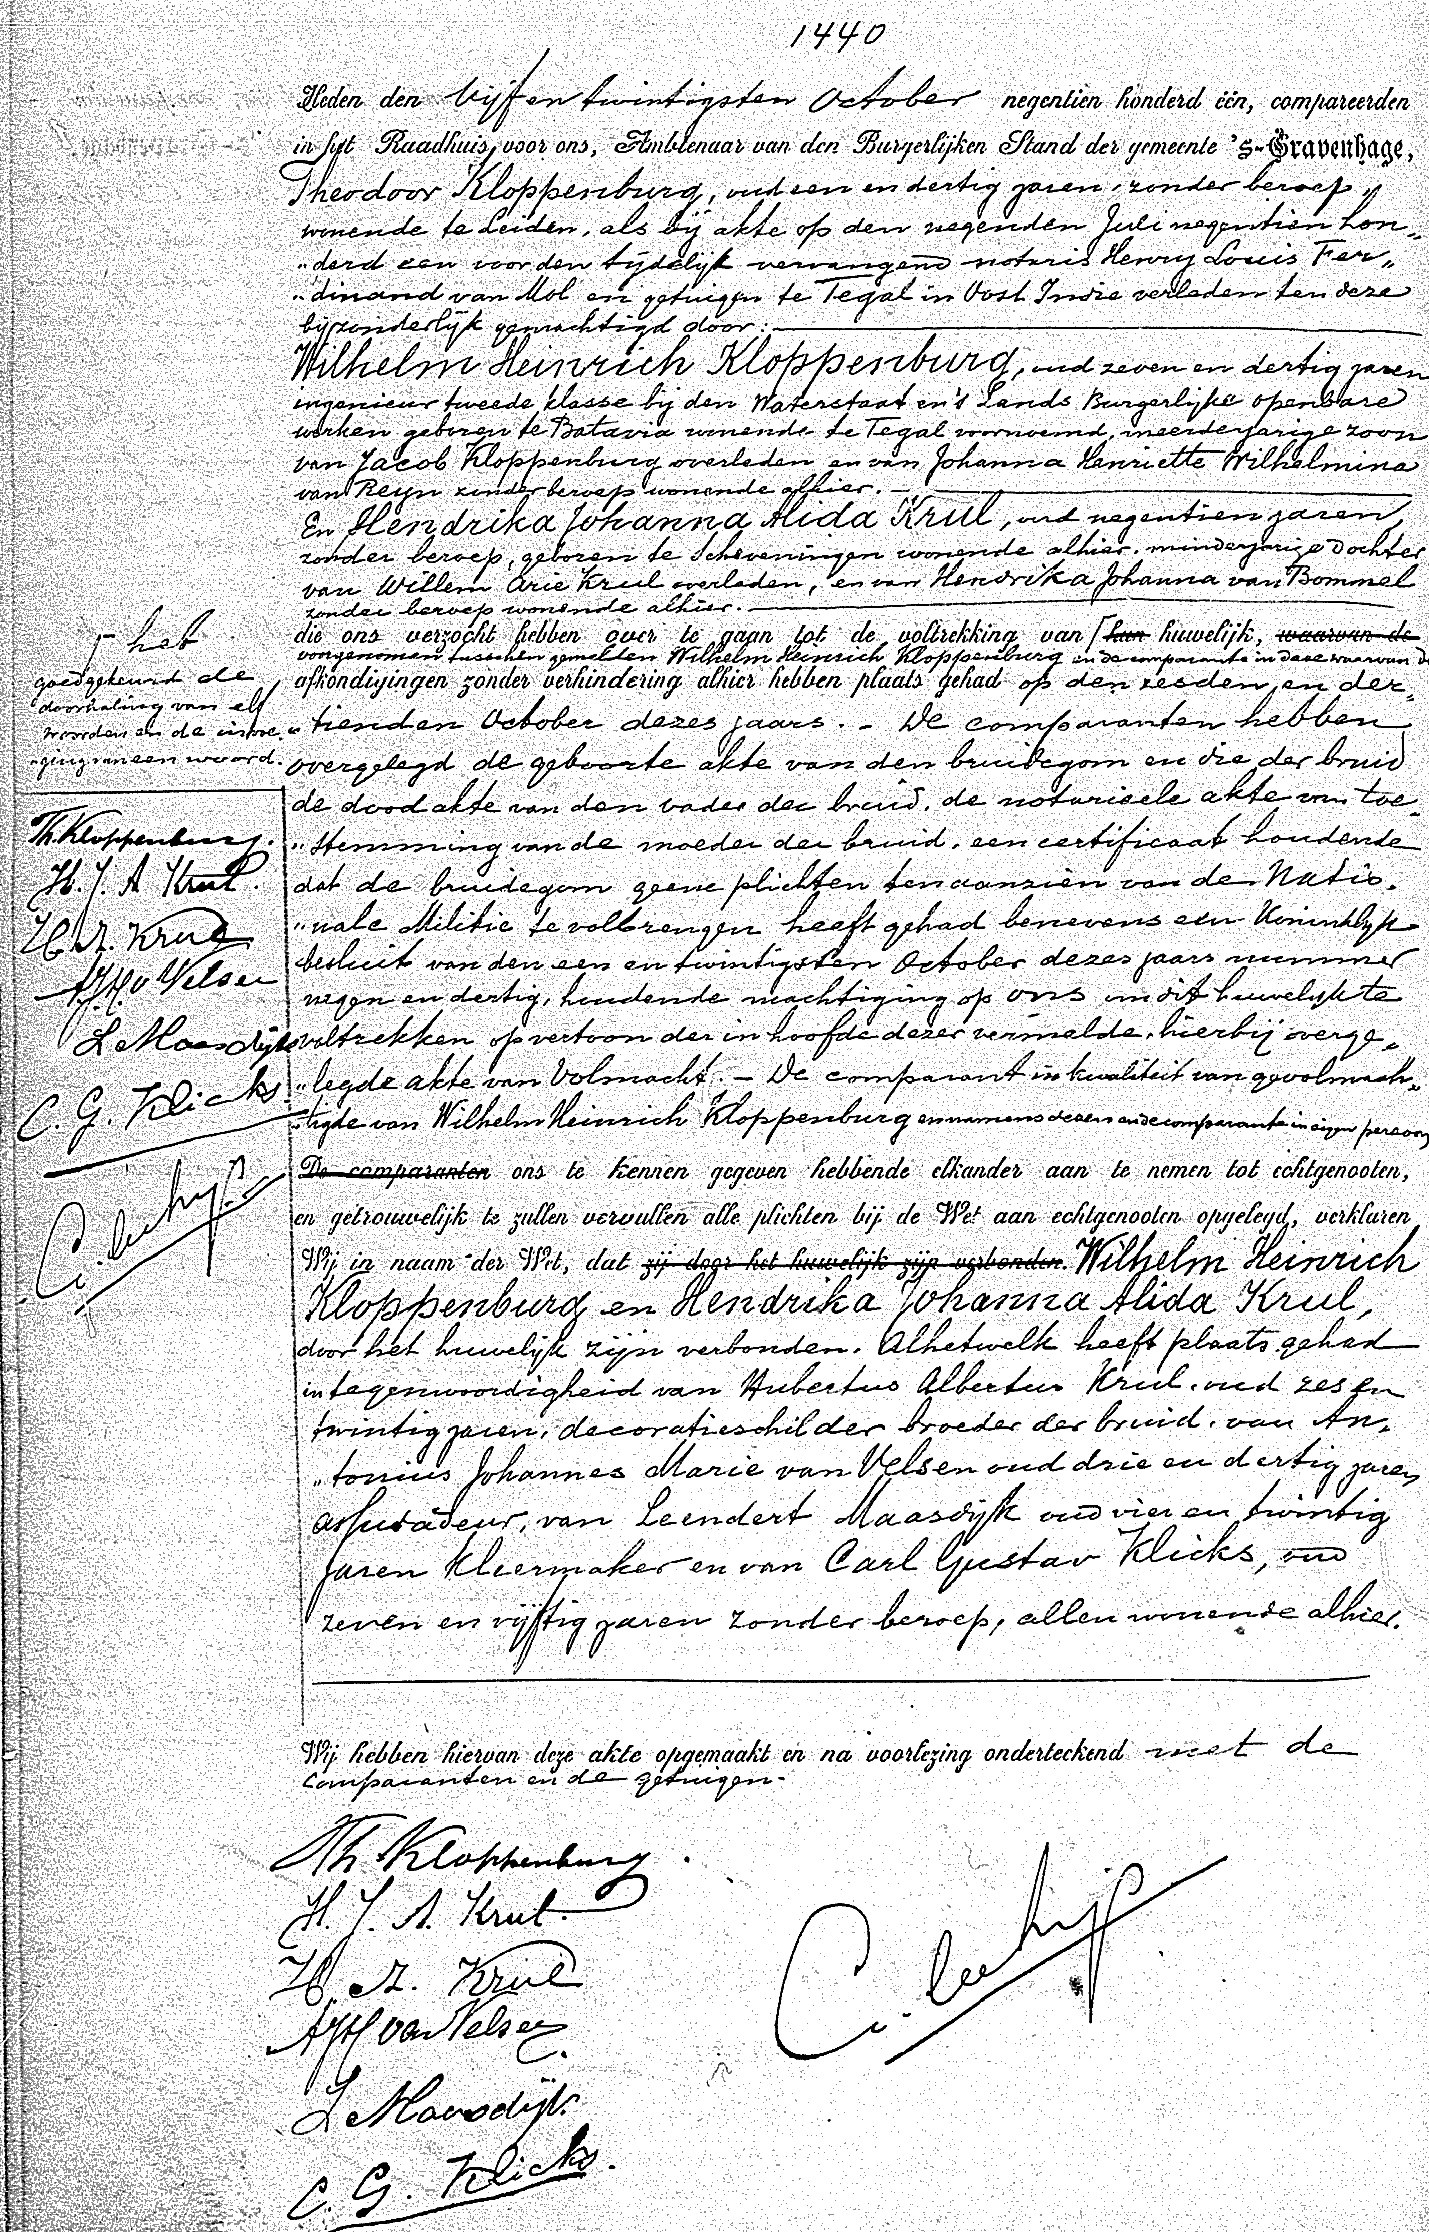 1440
Heden den vijf en twintigsten October negentien honderd één, compareerden
in het Raadhuis, voor ons, Ambtenaar van den Burgerlijken Stand der gemeente 's-Gravenhage,
Theodoor Kloppenburg, oud een en dertig jaren, zonder beroep,
wonende te Leiden, als bij akte op den negenden Juli negentien hon„
„derd een voor den tijdelijk vervangend notaris Henry Louis Fer„
„dinand van Mol en getuigen te Tegal in Oost Indie verleden ten deze
bijzonderlijk gemachtigd door:
Wilhelm Heinrich Kloppenburg, oud zeven en dertig jaren
ingenieur tweede klasse bij den Waterstaat en 's Lands Burgerlijke openbare
werken geboren te Batavia wonende te Tegal voornoemd, meerderjarige zoon
van Jacob Kloppenburg overleden en van Johanna Henriette Wilhelmina
van Reyn zonder beroep wonende alhier. —
En Hendrika Johanna Alida Krul, oud negentien jaren,
zonder beroep, geboren te Scheveningen wonende alhier. minderjarige dochter
van Willem Arie Krul overleden, en van Hendrika Johanna van Bommel
zonder beroep wonende alhier. —
die ons verzocht hebben over te gaan tot de voltrekking van ⌈ hun huwelijk, waarvan de
voorgenomen tusschen gemelden Wilhelm Heinrich Kloppenburg en de comparante in deze waarvan de
afkondigingen zonder verhindering alhier hebben plaats gehad op den zesden en der„
„tienden October dezes jaars. – De comparanten hebben
overgelegd de geboorte akte van den bruidegom en die der bruid
de dood akte van den vader der bruid, de notarieele akte van toe„
„stemming van de moeder der bruid, een certificaat houdende
dat de bruidegom geene plichten ten aanzien van de Natio„
„nale Militie te volbrengen heeft gehad benevens een Koninklijk
besluit van den een en twintigsten October dezes jaars nummer
negen en dertig, houdende machtiging op ons om dit huwelijk te
voltrekken op vertoon der in hoofde dezer vermelde, hierbij overge„
„legde akte van Volmacht. – De comparant in kwaliteit van gevolmach„
„tigde van Wilhelm Heinrich Kloppenburg en namens dezen en de comparante in eigen persoon
De comparanten ons te kennen gegeven hebbende elkander aan te nemen tot echtgenooten,
en getrouwelijk te zullen vervullen alle plichten bij de Wet aan echtgenooten opgelegd, verklaren
Wij in naam der Wet, dat zij door het huwelijk zijn verbonden. Wilhelm Heinrich
Kloppenburg en Hendrika Johanna Alida Krul,
door het huwelijk zijn verbonden. Alhetwelk heeft plaats gehad
in tegenwoordigheid van Hubertus Albertus Krul, oud zes en
twintig jaren, decoratieschilder broeder der bruid, van An„
„tonius Johannes Marie van Velsen oud drie en dertig jaren
assuradeur, van Leendert Maasdijk oud vier en twintig
jaren kleermaker en van Carl Gustav Klicks, oud
zeven en vijftig jaren zonder beroep, allen wonende alhier.
Wij hebben hiervan deze akte opgemaakt en na voorlezing onderteekend met de
comparanten en de getuigen.
Th. Kloppenburg.
H. J. A. Krul.
H. A. Krul
AJM van Velsen
L Maasdijk.
C. G. Klicks.
⌈ het
goedgekeurd de
doorhaling van elf
woorden en de invoe„
„ging van een woord.
Th. Kloppenburg.
H. J. A Krul.
H. A. Krul
AJM. v Velsen
L Maasdijk
C. G. Klicks.